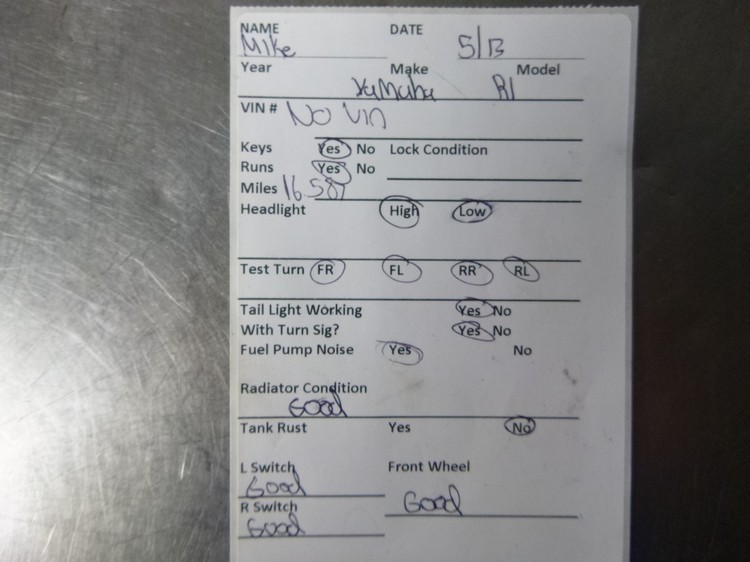 NAME DATE
Mike 5/13
Year Make Model
Yamaha R1
VIN # No Vin
Keys Yes No Lock Condition
Runs Yes No
Miles 16 587
Headlight High Low
Test Turn FR FL RR RL
Tail Light Working Yes No
With Turn Sig? Yes No
Fuel Pump Noise Yes No
Radiator Condition
Good
Tank Rust Yes No
L Switch Front Wheel
Good Good
R Switch
Good